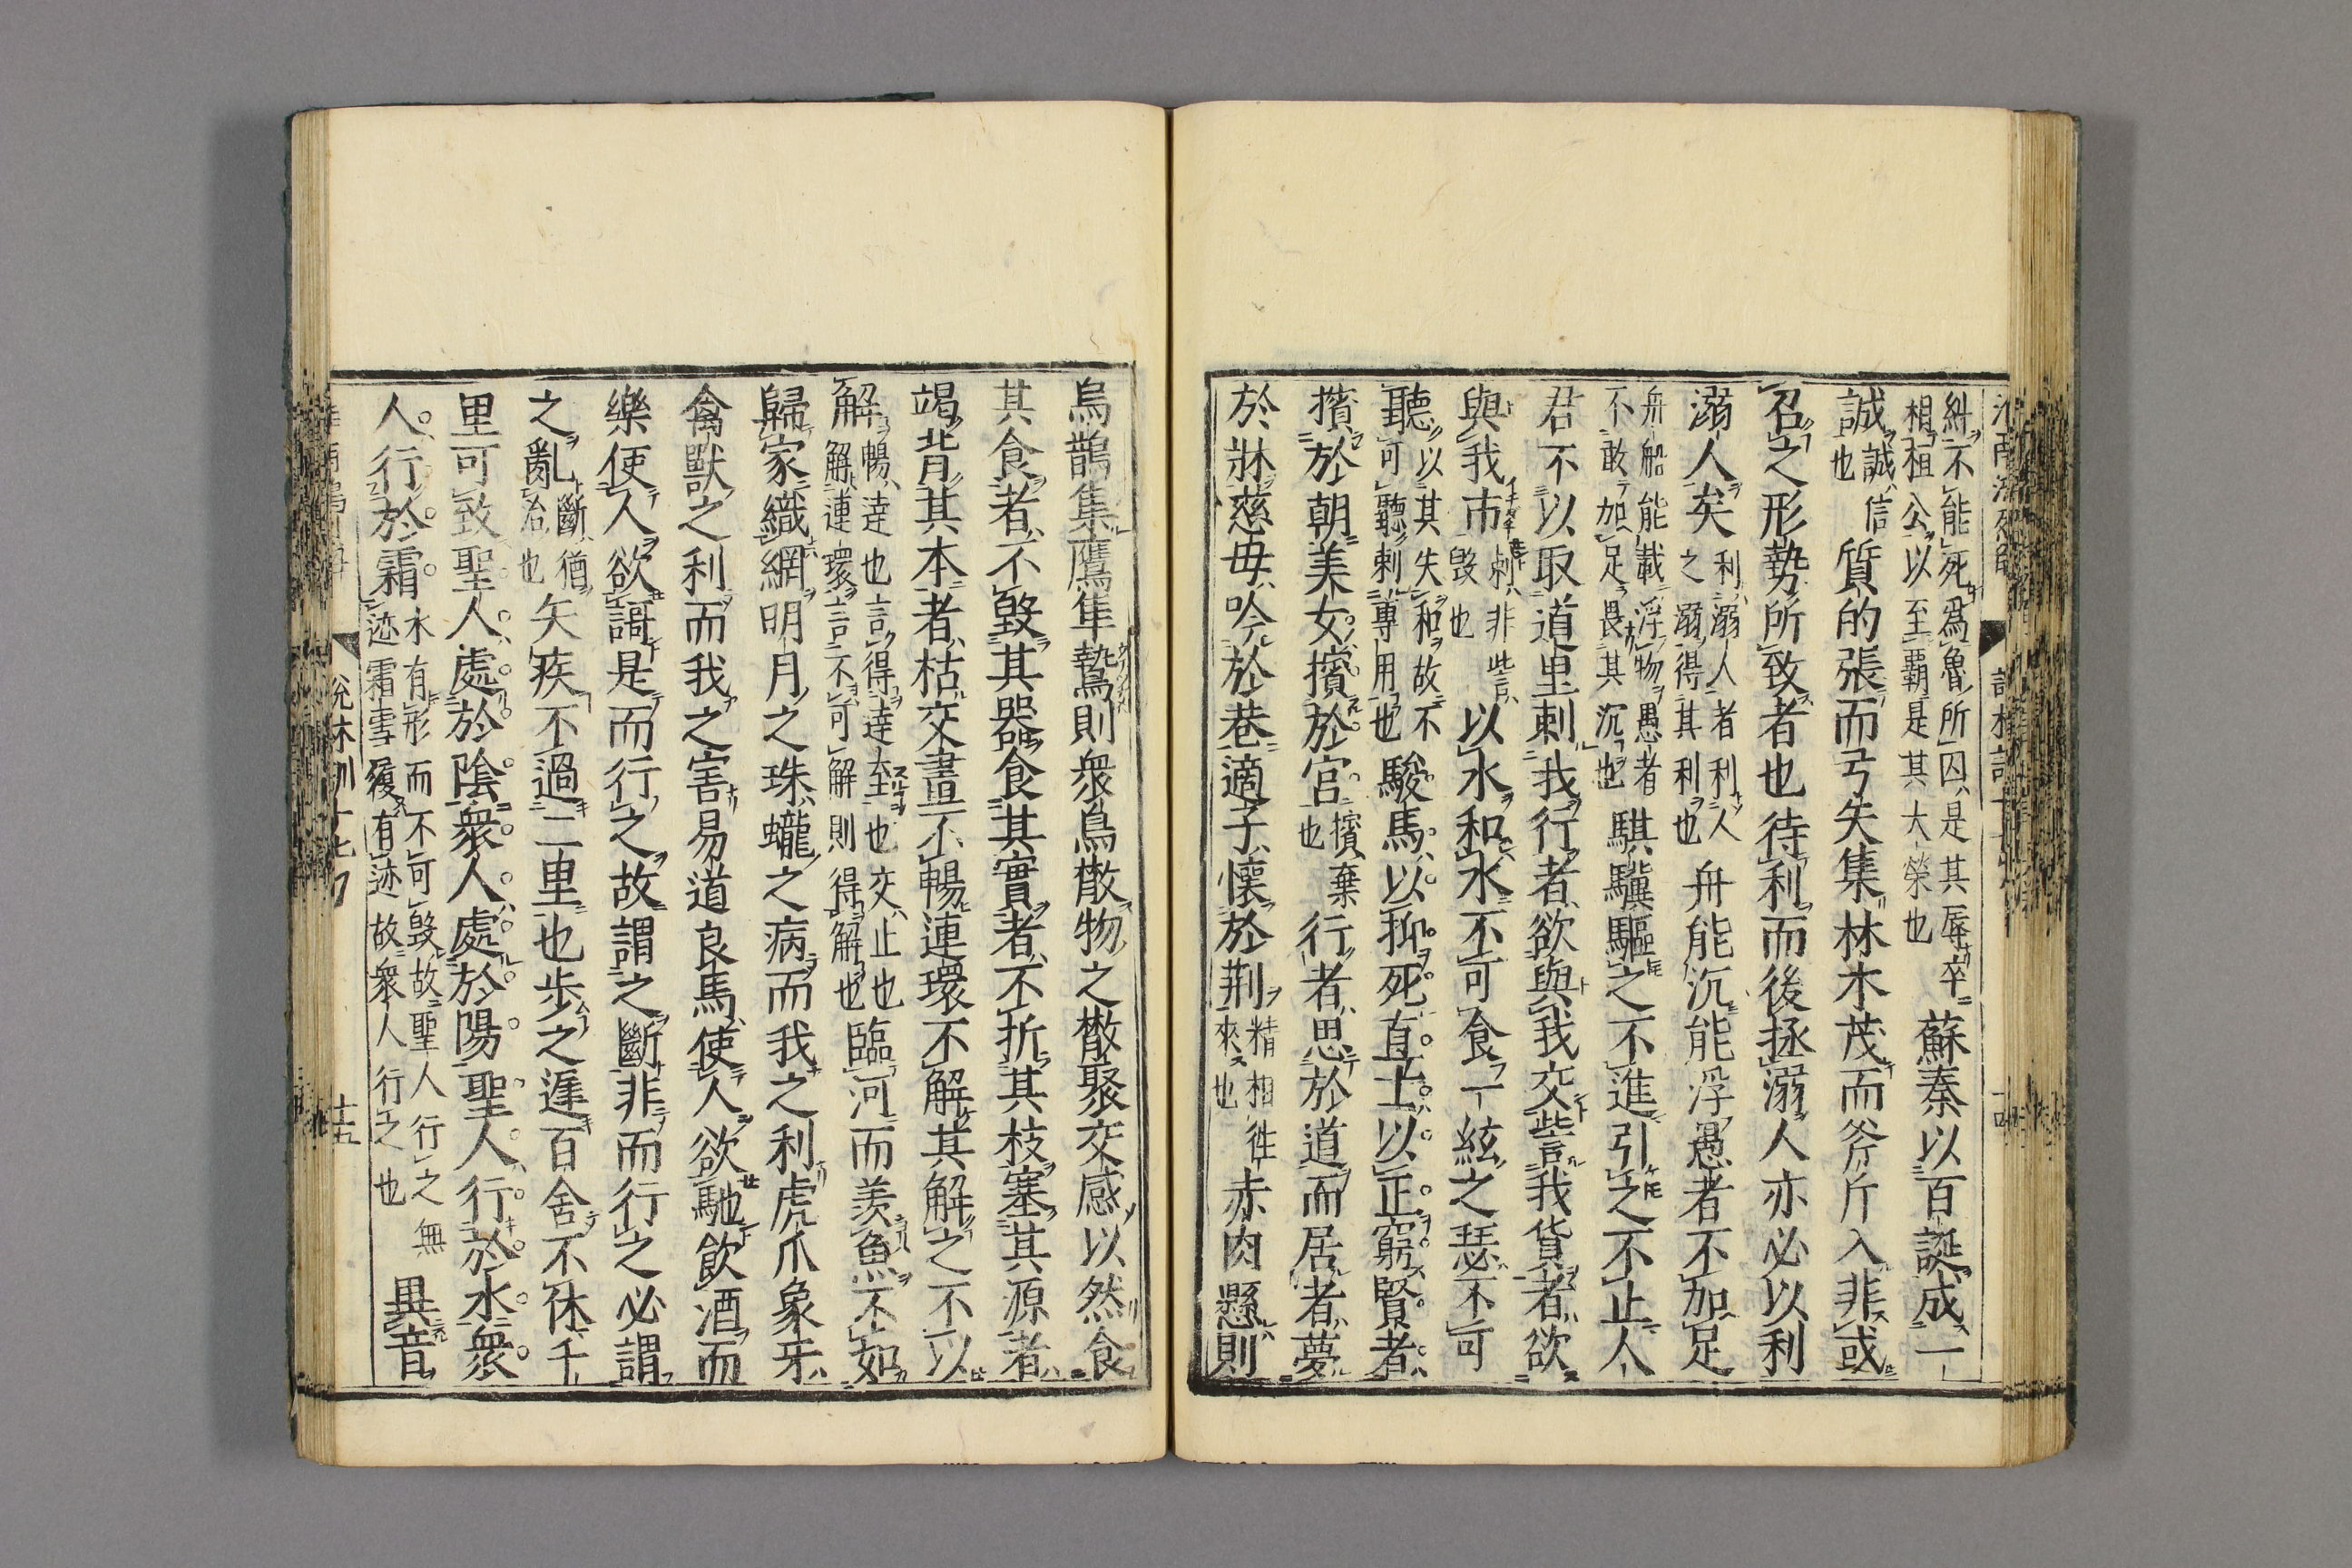 糾不能死爲魯所囚是其辱卒
相桓公以至覇是其大榮也
蘇秦以百誕成一
誠
誠信
也
質的張而弓矢集林木茂而斧斤入非或
召之形勢所致者也待利而後拯溺人亦必以利
溺人矣
利溺人者利人
之溺得其利也
舟能沉能浮愚者不加足
舟船能載浮物愚者
不敢加足畏其沉也
騏驥驅之不進引之不止人
君不以取道里刺我行者欲與我交訾我貨者欲
與我市
刺非訾
毀也
以水和水不可食一絃之瑟不可
聽
以其失和故不
可聽刺專用也
駿馬以抑死直士以正窮賢者
擯於朝美女擯於宮
擯棄
也
行者思於道而居者夢
於牀慈母吟於巷適子懷於荆
精相徃
來也
赤肉懸則
烏鵲集鷹隼鷙則衆鳥散物之散聚交感以然食
其食者不毀其器食其實者不折其枝塞其源者
竭背其本者枯交畫不暢連環不解其解之不以
解
暢達也言得達至也交止也
解連環言不可解則得解也
臨河而羡魚不如
歸家織網明月之珠蠬之病而我之利虎爪象牙
禽獸之利而我之害易道良馬使人欲馳飮酒而
樂使人欲謌是而行之故謂之斷非而行之必謂
之亂
斷猶
治也
矢疾不過二里也歩之遲百舍不休千
里可致聖人處於陰衆人處於陽聖人行於水衆
人行於霜
水有形而不可毀故聖人行之無
迹霜雪履有迹故衆人行之也
異音
說林訓十七
十五